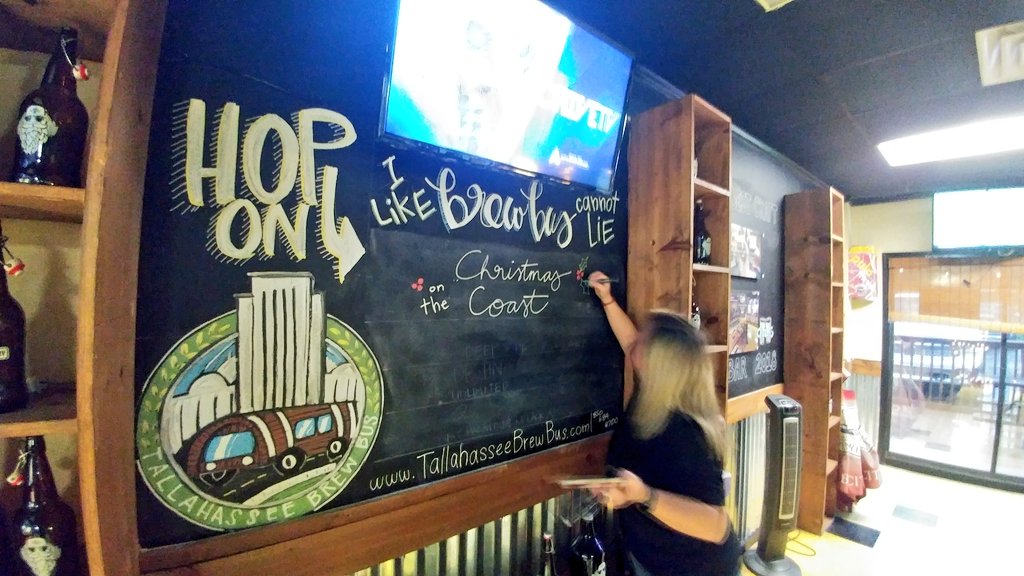 HOP
ON
I
LIKE Brew bus cannot
LIE
Christmas
on
the Coast
TALLAHASSEE BREW BUS
www.TallahasseeBrewBus.com
BAR 2016